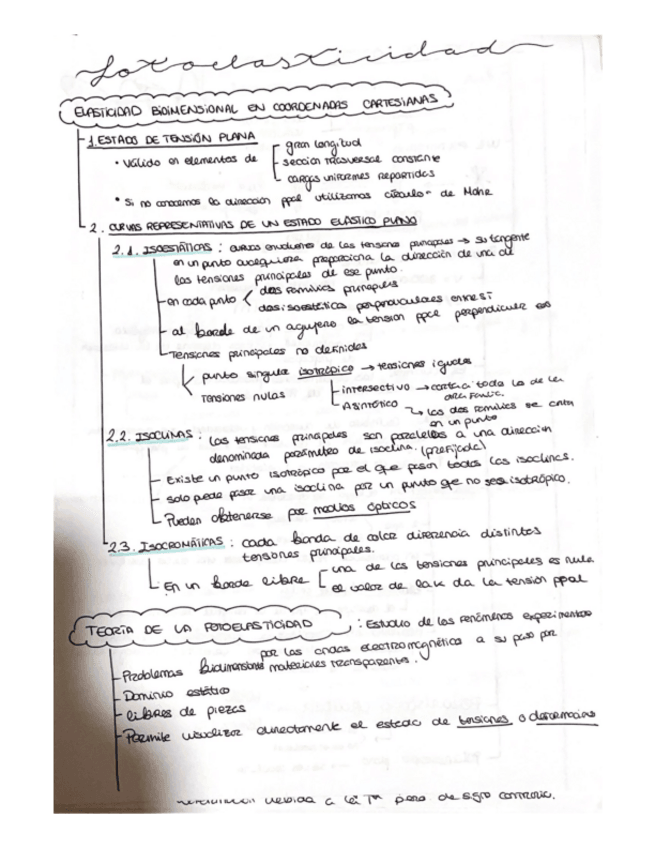 Fotoelasticidad
ELASTICIDAD BIDIMENSIONAL EN COORDENADAS CARTESIANAS
1. ESTADO DE TENSIÓN PLANA
• Válido en elementos de
gran longitud
sección trasversal constante
cargas uniformes repartidas
• Si no conocemos la dirección ppal utilizamos círculo de Mohr
2. CURVAS REPRESENTATIVAS DE UN ESTADO ELÁSTICO PLANO
2.1. ISOESTÁTICAS: curvas envolventes de las tensiones principales → su tangente
en un punto cualquiera proporciona la dirección de una de
las tensiones principales de ese punto.
- en cada punto
dos familias principales
dos isostáticas perpendiculares entre sí
- al borde de un agujero la tensión ppal perpendicular es
Tensiones principales no definidas
punto singular isotrópico → tensiones iguales
Tensiones nulas
intersectivo → corta a toda la de la
otra familia.
Asintótico
↳ las dos familias se
en un punto
2.2. ISOCLINAS: las tensiones principales son paralelas a una dirección
denominada parámetro de isoclina. (prefijada)
- Existe un punto isotrópico por el que pasan todas las isoclinas.
- solo puede pasar una isoclina por un punto qe no sea isotrópico.
- Pueden obtenerse por medios ópticos
2.3. ISOCROMÁTICAS: cada banda de color diferencia distintas
tensiones principales.
En un borde libre
una de las tensiones principales es nula
el valor de la da la tensión ppal
TEORÍA DE LA FOTOELASTICIDAD: Estudio de los fenómenos experimentados
por las ondas electromagnética a su paso por
materiales transparentes.
- Problemas bidimensionales
- Dominio estático
- libres de piezas
- Permite visualizar directamente el estado de tensiones o deformacias
debida a la Tª pero de signo contrario.